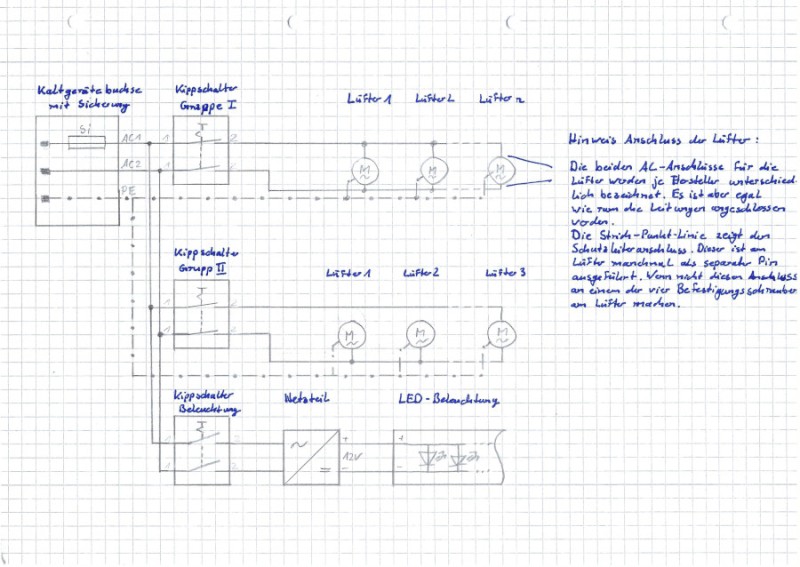 Kaltgerätebuchse
mit Sicherung
Si
AC1
AC2
PE
Kippschalter
Gruppe I
1
2
1
2
Lüfter 1
Lüfter 2
Lüfter n
M
M
M
Hinweis Anschluss der Lüfter:
Die beiden AC-Anschlüsse für die
Lüfter werden je Hersteller unterschied
lich bezeichnet. Es ist aber egal
wie rum die Leitungen angeschlossen
werden.
Die Strich-Punkt-Linie zeigt den
Schutzleiteranschluss. Dieser ist am
Lüfter manchmal als separater Pin
ausgeführt. Wenn nicht diesen Anschluss
an einem der vier Befestigungsschrauben
am Lüfter machen.
Kippschalter
Grupp II
1
2
1
2
Lüfter 1
Lüfter 2
Lüfter 3
M
M
M
Kippschalter
Beleuchtung
1
2
1
2
Netzteil
+
12V
LED-Beleuchtung
+